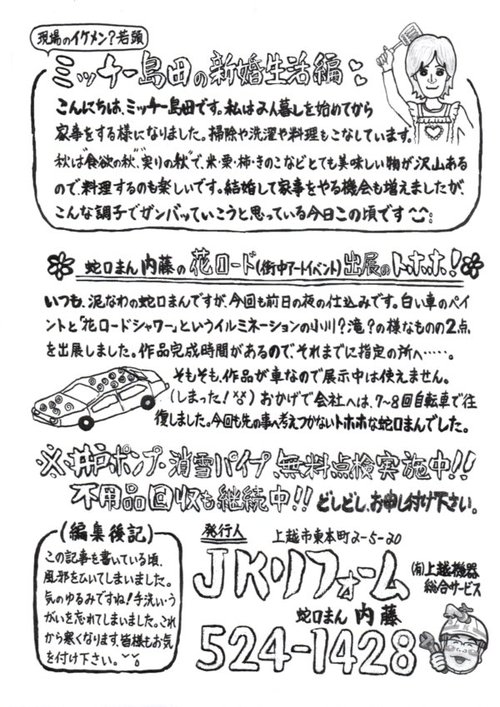 現場のイケメン?若頭
ミッチー島田の新婚生活編
こんにちは、ミッチー島田です。私は2人暮しを始めてから
家事をする様になりました。掃除や洗濯や料理もこなしています。
秋は"食欲の秋"、"実りの秋"で、米・栗・柿・きのこなどとても美味しい物が沢山ある
ので、料理するのも楽しいです。結婚して家事をやる機会も増えましたが、
こんな調子でガンバッていこうと思っている今日この頃です
蛇口まん 内藤の花ロード(街中アートイベント)出展のトホホ!
いつも、泥なわの蛇口まんですが、今回も前日の夜の仕込みです。白い車のペイ
ントと「花ロードシャワー」というイルミネーションの小川?滝?の様なものの2点
を出展しました。作品完成時間があるので、それまでに指定の所へ・・・・・。
そもそも、作品が車なので展示中は使えません。
(しまった!)おかげで会社へは、7~8回自転車で往
復しました。今回も先の事へ考えつかないトホホな蛇口まんでした。
※井戸ポンプ・消雪パイプ、無料点検実施中!!
不用品回収も継続中!! どしどし、お申し付け下さい。
(編集後記)
この記事を書いている頃、
風邪をひいてしまいました。
気のゆるみですね!手洗い・う
がいを忘れてしまいました。これ
から寒くなります、皆様もお気
を付け下さい。
発行人 上越市東本町2-5-20
JKリフォーム
(有)上越機器
総合サービス
蛇口まん 内藤
524-1428